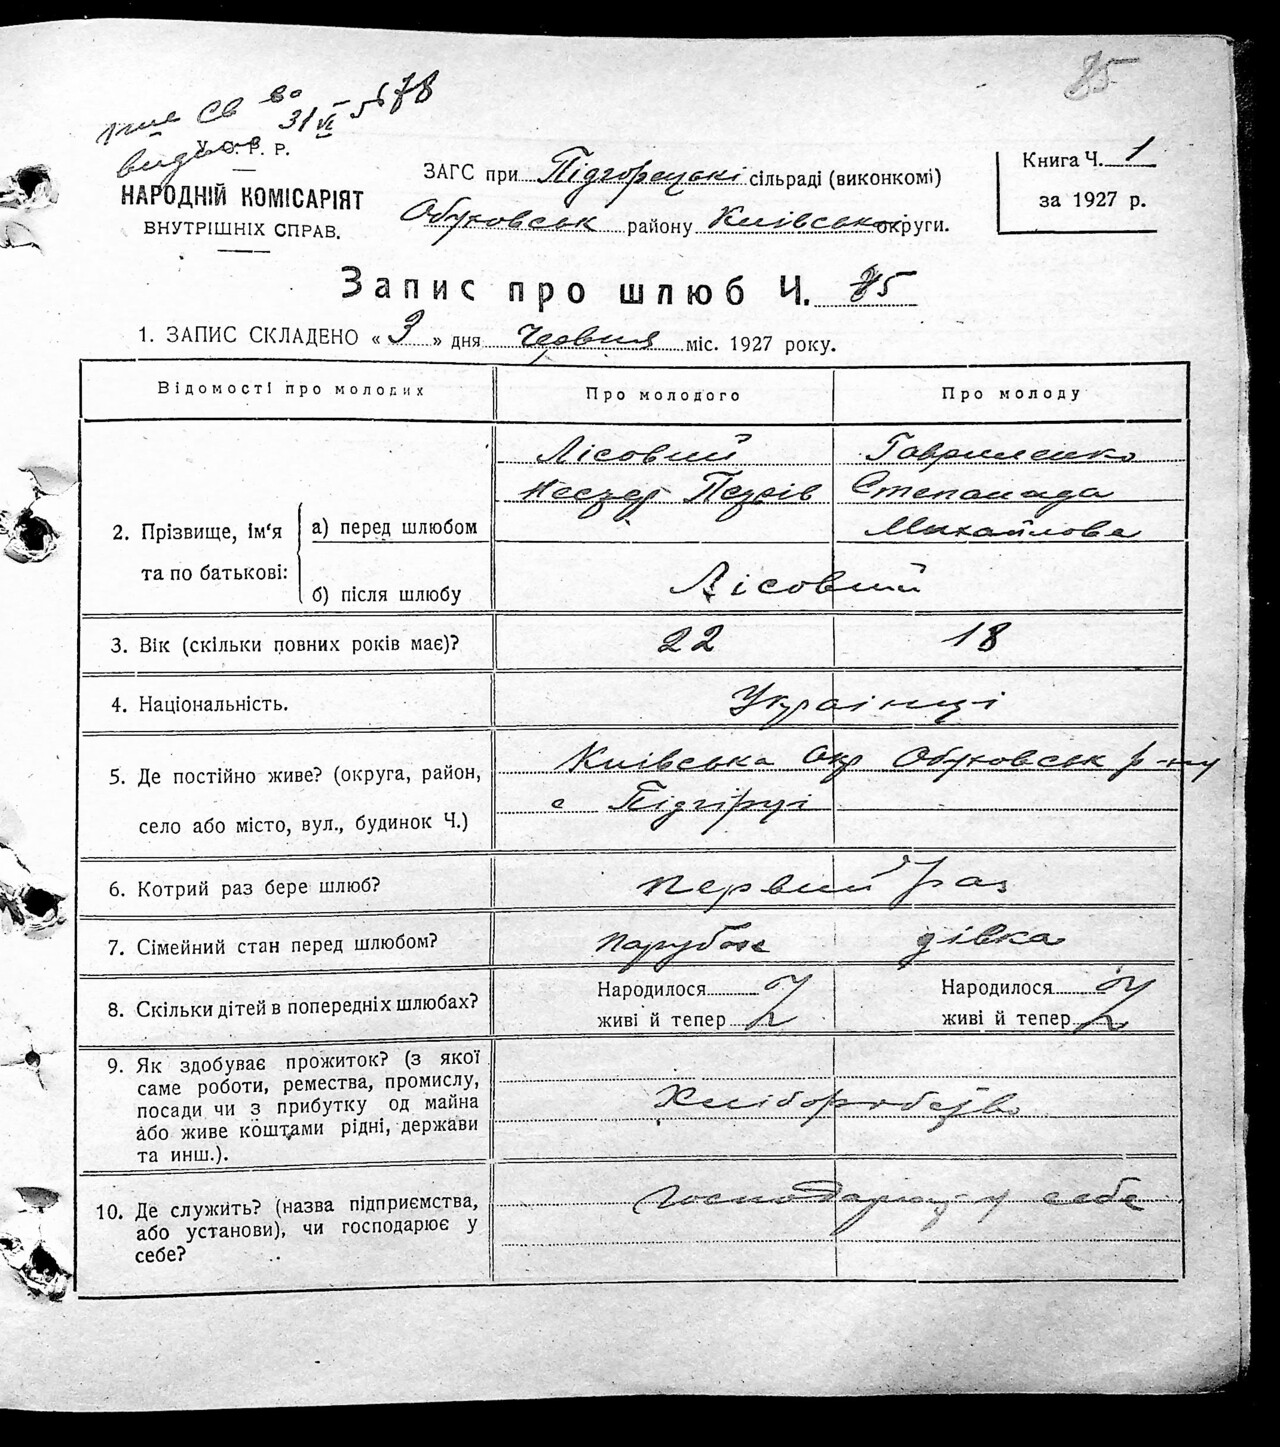 85
св во
31 VI
видано
У. С. Р. Р.
НАРОДНІЙ КОМІСАРІЯТ
ВНУТРІШНІХ СПРАВ.
ЗАГС при Підгорецькі сільраді (виконкомі)
Обуховськ району Київськ округи.
Книга Ч. 1
за 1927 р.
Запис про шлюб Ч. 85
1. ЗАПИС СКЛАДЕНО « 3 » дня Червня міс. 1927 року.
Відомості про молодих
Про молодого
Про молоду
2. Прізвище, ім‘я
та по батькові:
а) перед шлюбом
Лісовий
Нестер Петрів
Гавриленко
Степанида
Михайлова
б) після шлюбу
Лісовий
3. Вік (скільки повних років має)?
22
18
4. Національність.
Українці
5. Де постійно живе? (округа, район,
село або місто, вул., будинок Ч.)
Київська окр Обуховськ р-ну
с Підгірці
6. Котрий раз бере шлюб?
первий раз
7. Сімейний стан перед шлюбом?
парубок
дівка
8. Скільки дітей в попередніх шлюбах?
Народилося
живі й тепер
Народилося
живі й тепер
9. Як здобуває прожиток? (з якої
саме роботи, ремества, промислу,
посади чи з прибутку од майна
або живе коштами рідні, держави
та инш.).
Хліборобство
10. Де служить? (назва підприємства,
або установи), чи господарює у
себе?
Господарює у себе